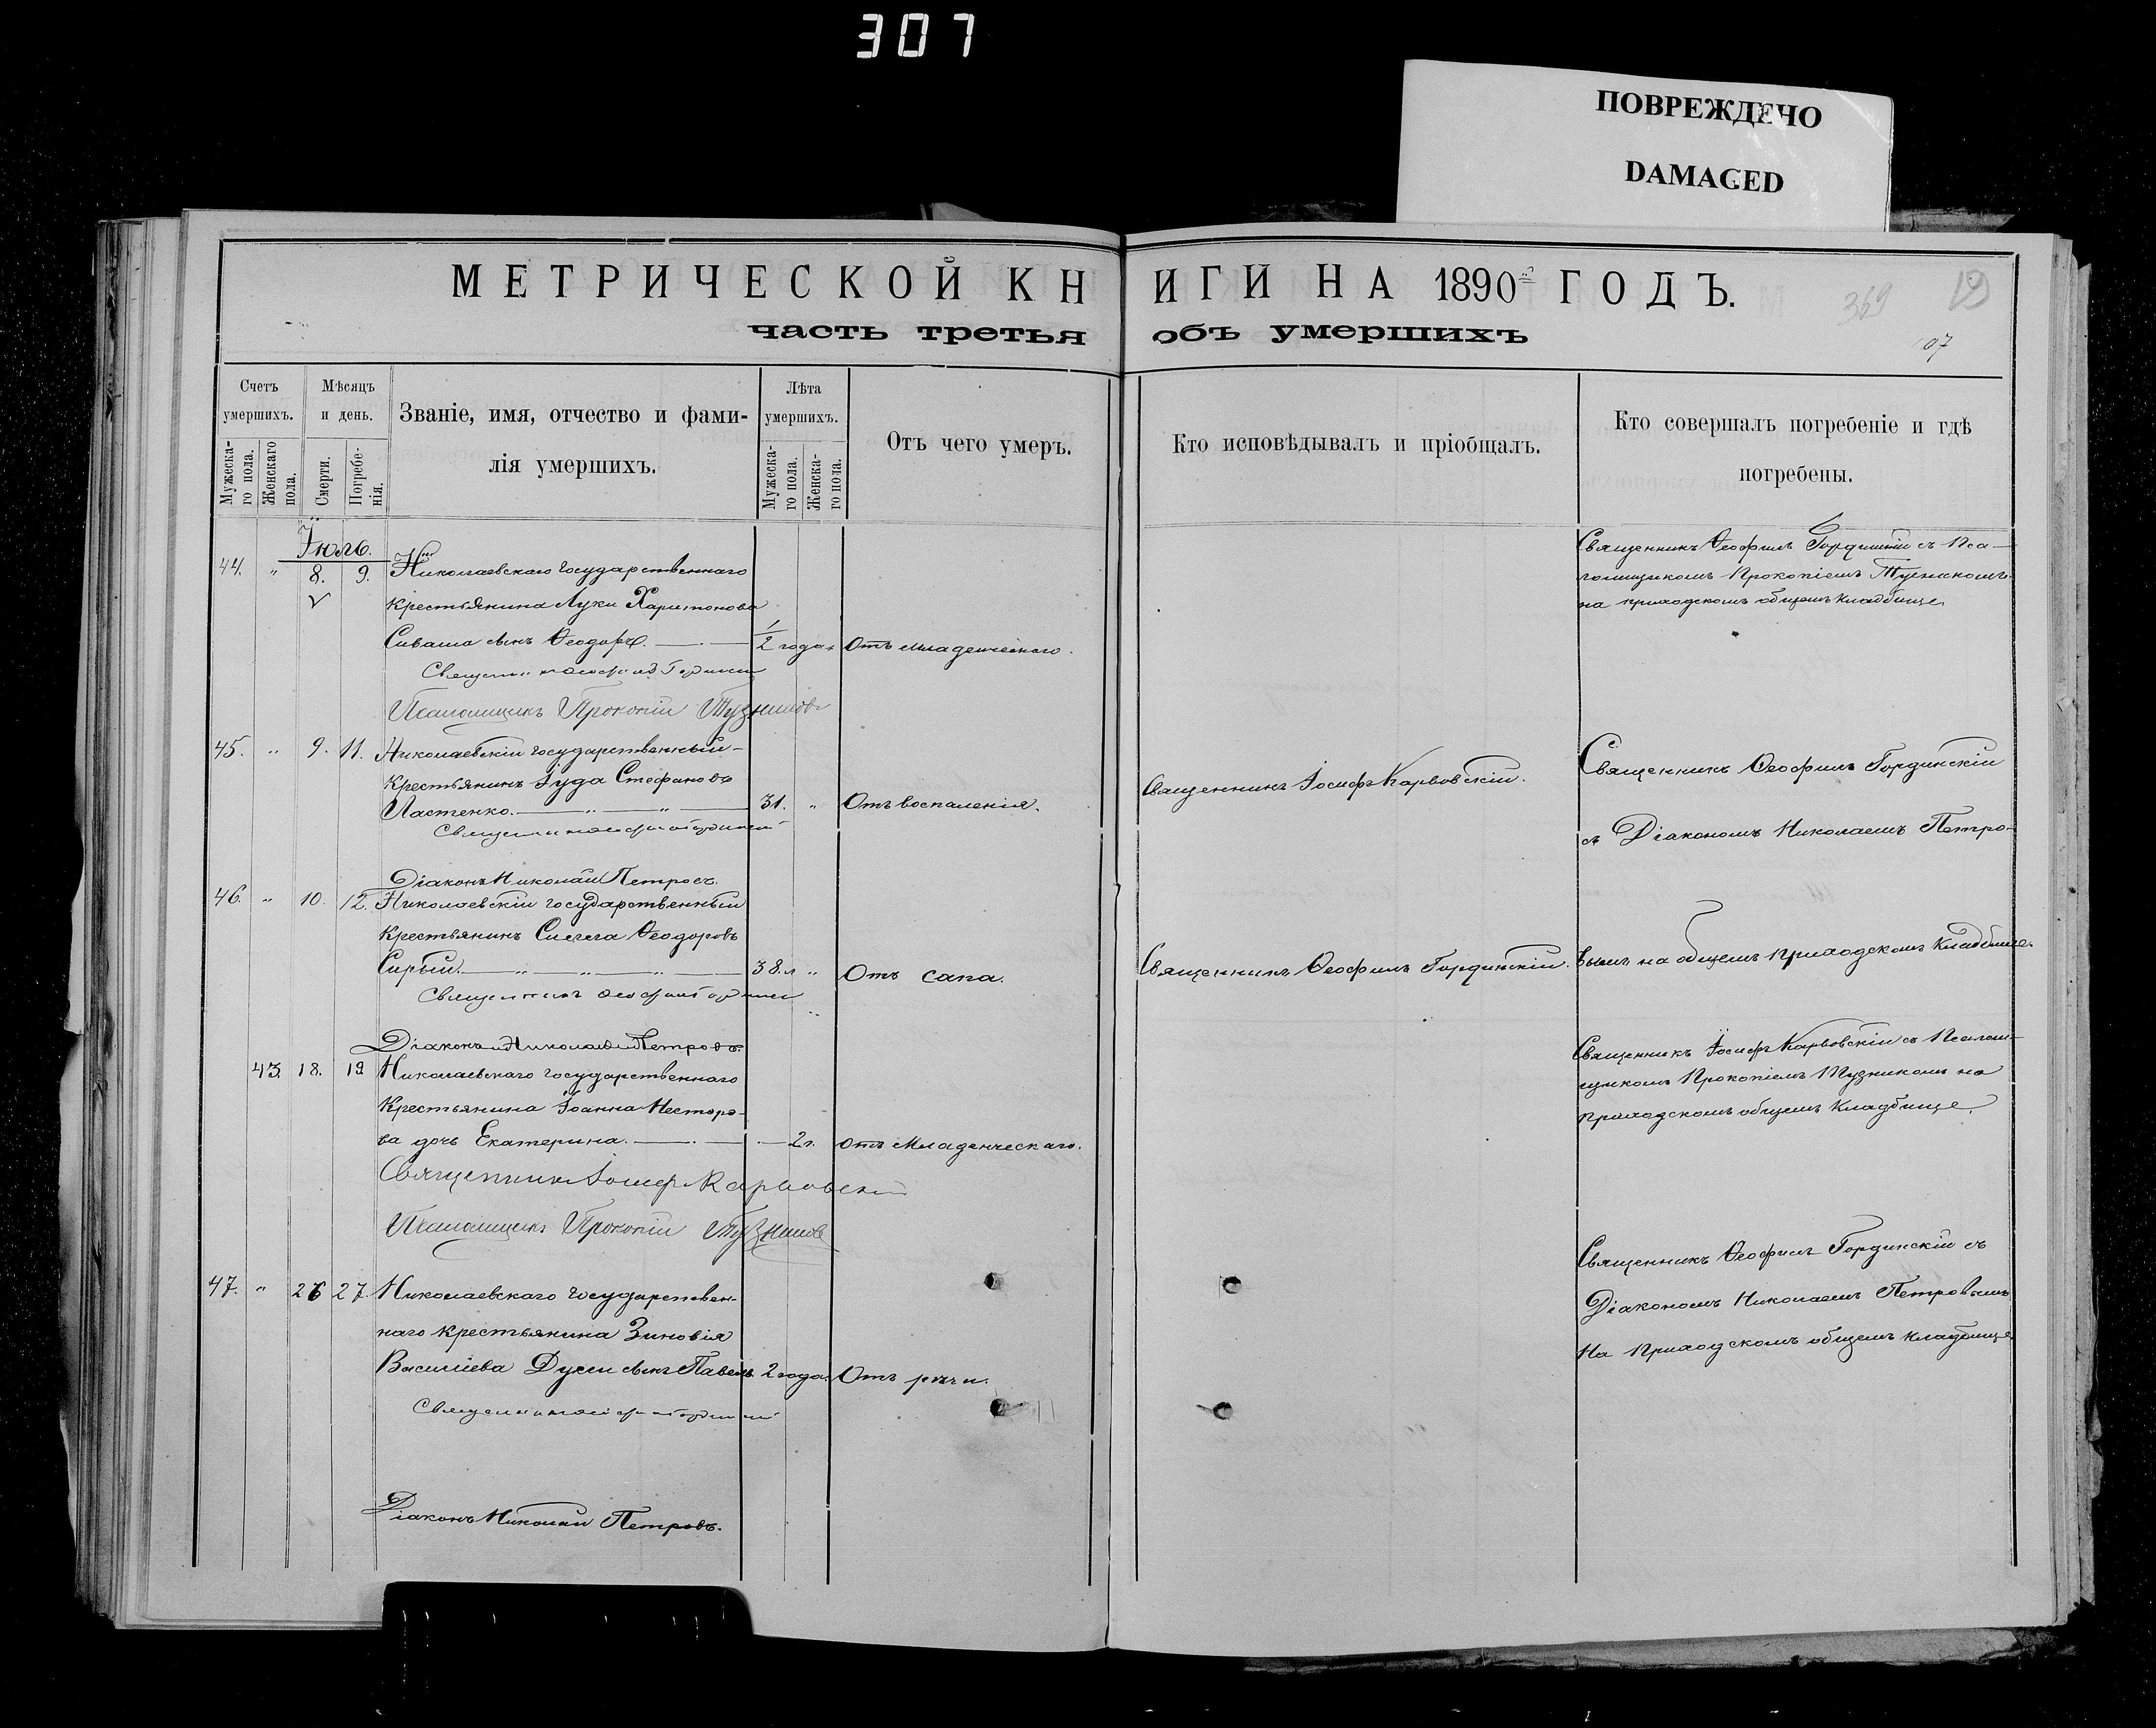 307
ПОВРЕЖДЕНО
DAMAGED
МЕТРИЧЕСКОЙ КНИГИ НА 1890й ГОДЪ.
369
19
107
часть третья объ умершихъ
Счетъ умершихъ.
Мужеска-го пола.
Женскаго пола.
Мѣсяцъ и день.
Смерти.
Погребе-нія.
Званіе, имя, отчество и фами-
лія умершихъ.
Лѣта умершихъ.
Мужеска-го пола.
Женска-го пола.
Отъ чего умеръ.
Кто исповѣдывалъ и пріобщалъ.
Кто совершалъ погребеніе и гдѣ
погребены.
Іюль.
44. " 8. 9. Николаевскаго государственнаго
крестьянина Луки Харитонова
Сиваша сынъ Ѳеодоръ. 1/2 года. Отъ младенческаго.
Священникъ Ѳеофилъ Гординскій
Псаломщикъ Прокопій
Священникъ Ѳеофилъ Гординскій съ Пса-
ломщикомъ Прокопіемъ
на приходскомъ общемъ кладбище
45. " 9. 11. Николаевскій государственный
крестьянинъ Іуда Стефановъ
Ластенко. 31. " Отъ воспаленія.
Священникъ Ѳеофилъ Гординскій
Діаконъ Николай Петровъ.
Священникъ Іосифъ Карвовскій.
Священникъ Ѳеофилъ Гординскій
съ Діакономъ Николаемъ Петро-
46. " 10. 12. Николаевскій государственный
крестьянинъ Ѳеодоровъ
Сирый. 38. л " Отъ сапа.
Священникъ Ѳеофилъ Гординскій
Діаконъ Николай Петровъ.
Священникъ Ѳеофилъ Гординскій.
вымъ на общемъ приходскомъ кладбище.
43. 18. 19 Николаевскаго государственнаго
крестьянина Іоанна Несторо-
ва дочь Екатерина. 2 г. отъ Младенческаго.
Священникъ Іосифъ Карвовскій
Псаломщикъ Прокопій
Священникъ Іосифъ Карвовскій съ Псалом-
щикомъ Прокопіемъ на
приходскомъ общемъ кладбище.
47. " 26 27. Николаевскаго государствен-
наго крестьянина Зиновія
Василіева сынъ Павелъ. 2 года. Отъ
Священникъ Ѳеофилъ Гординскій
Діаконъ Николай Петровъ.
Священникъ Ѳеофилъ Гординскій съ
Діакономъ Николаемъ Петровымъ
На приходскомъ общемъ кладбище